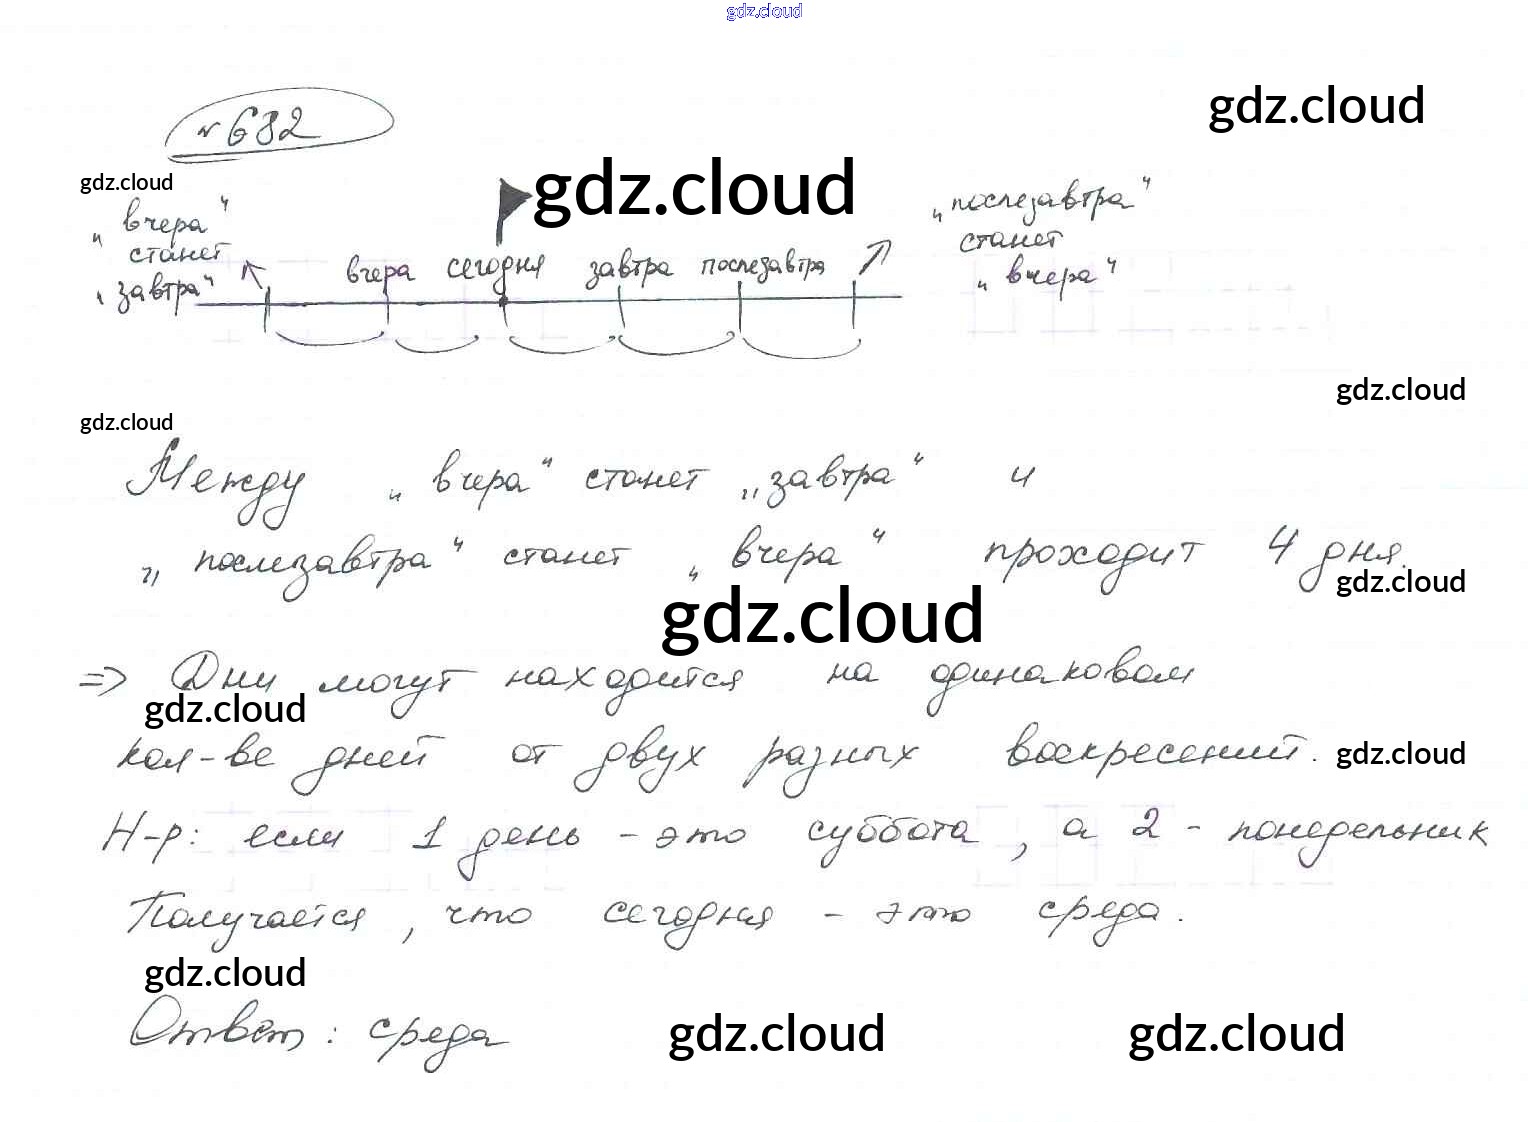 gdz.cloud
gdz.cloud
№ 682
gdz.cloud
gdz.cloud
„вчера“
станет
„завтра“
вчера сегодня завтра послезавтра
„послезавтра“
станет
„вчера“
gdz.cloud
gdz.cloud
Между „вчера“ станет „завтра“ и
„послезавтра“ станет „вчера“ проходит 4 дня.
gdz.cloud
gdz.cloud
=> Дни могут находится на одинаковом
gdz.cloud
кол-ве дней от двух разных воскресений.
gdz.cloud
Н-р: если 1 день - это суббота, а 2 - понедельник
Получается, что сегодня - это среда.
gdz.cloud
Ответ: среда
gdz.cloud
gdz.cloud